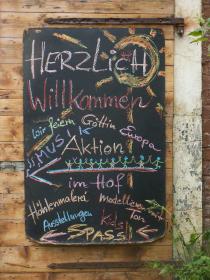 HERZLicH
Willkommen
Wir feiern Göttin Europa
MUSIK
Aktion
im Hof
Höhlenmalerei modellieren mit Ton
Ausstellungen Kids!
SPASS!